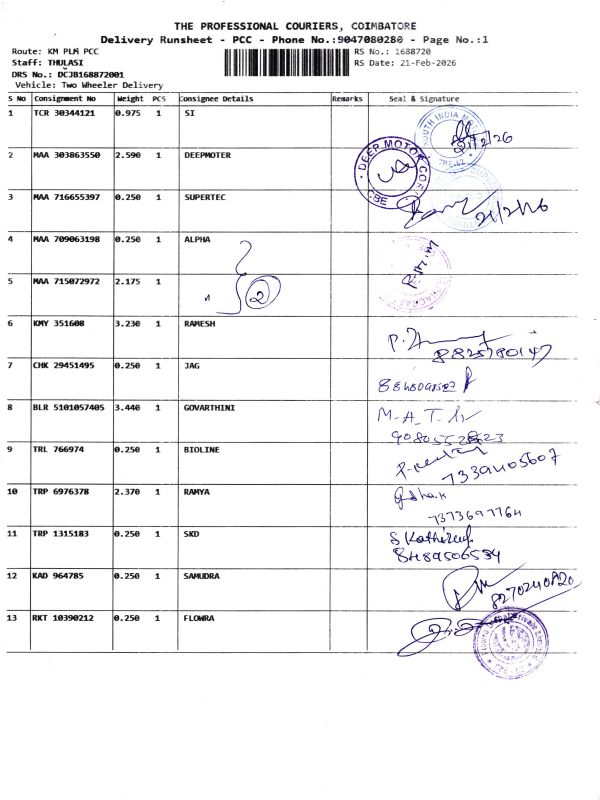 THE PROFESSIONAL COURIERS, COIMBATORE
Delivery Runsheet - PCC - Phone No.:9047080280 - Page No.:1
Route: KM PLM PCC RS No.: 1688720
Staff: THULASI RS Date: 21-Feb-2026
DRS No.: DCJB168872001
Vehicle: Two Wheeler Delivery
S No Consignment No Weight PCS Consignee Details Remarks Seal & Signature
1 TCR 30344121 0.975 1 SI
21/2/26
2 MAA 303863550 2.590 1 DEEPMOTER
DEEP MOTOR CBE
3 MAA 716655397 0.250 1 SUPERTEC
21/2/26
4 MAA 709063198 0.250 1 ALPHA
5 MAA 715072972 2.175 1
2
6 KMY 351608 3.230 1 RAMESH
8825780147
7 CHK 29451495 0.250 1 JAG
8 BLR 5101057405 3.440 1 GOVARTHINI
M-A-T
9 TRL 766974 0.250 1 BIOLINE
7339405607
10 TRP 6976378 2.370 1 RAMYA
7373697764
11 TRP 1315183 0.250 1 SKD
8489506594
12 KAD 964785 0.250 1 SAMUDRA
13 RKT 10390212 0.250 1 FLOWRA